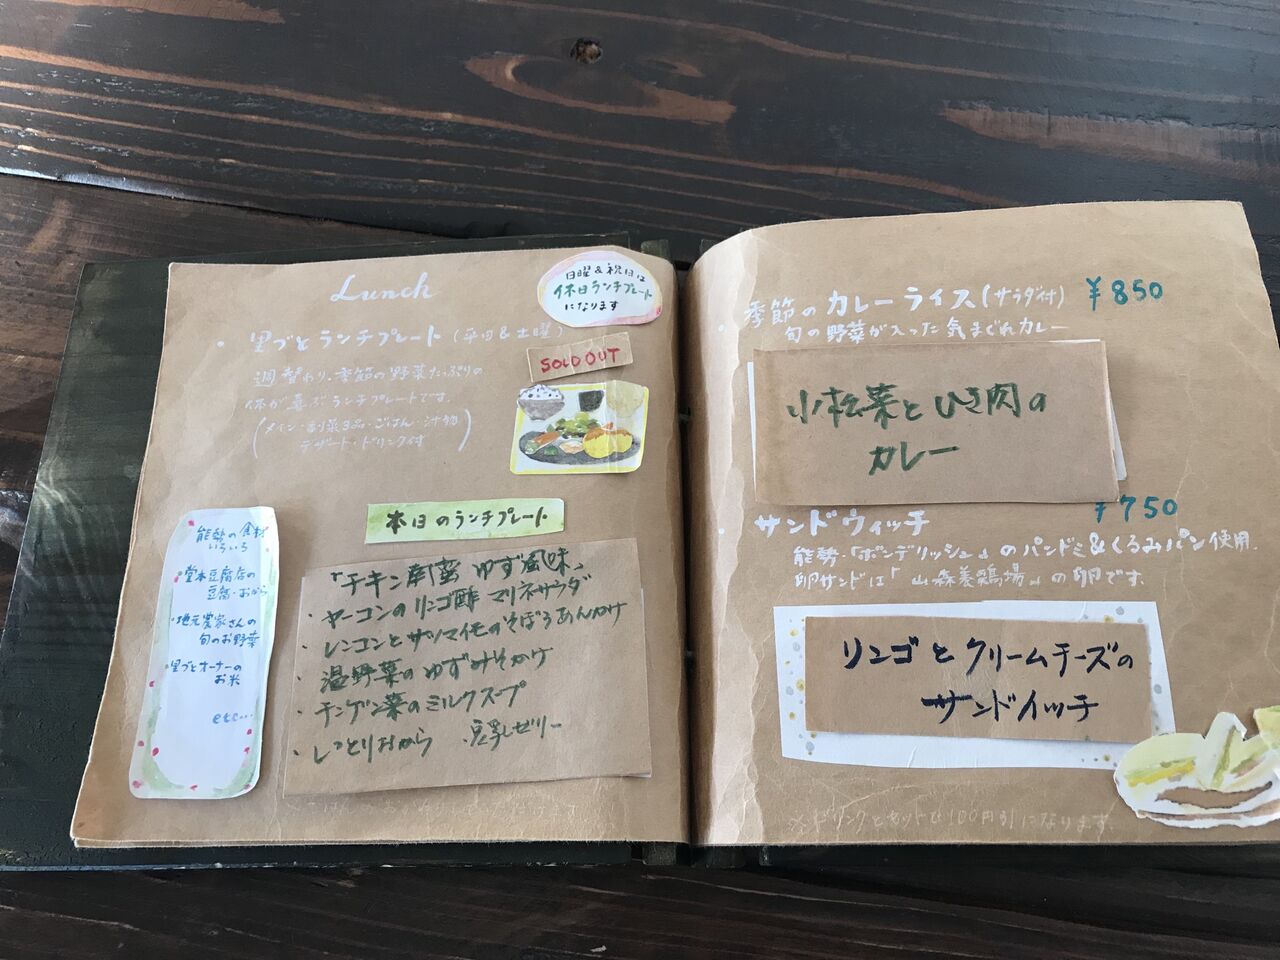 Lunch
日曜&祝日は
休日ランチプレート
になります
・里づとランチプレート(平日&土曜)
SOLD OUT
週替わり・季節の野菜たっぷりの
体が喜ぶランチプレートです。
(メイン・副菜3品・ごはん・汁物
デザート・ドリンク付)
本日のランチプレート
「チキン南蛮 ゆず風味」
・ヤーコンのリンゴ酢マリネサラダ
・レンコンとサツマイモのそぼろあんかけ
・温野菜のゆずみそかけ
・チンゲン菜のミルクスープ
・しっとりおから ・豆乳ゼリー
能勢の食材
いろいろ
・堂本豆腐店の
豆腐・おから
・地元農家さんの
旬のお野菜
・里づとオーナーの
お米
etc...
・季節のカレーライス(サラダ付) ¥850
旬の野菜が入った気まぐれカレー
小松菜とひき肉の
カレー
¥750
・サンドウィッチ
能勢「ボンデリッシュ」のパンドミ&くるみパン使用。
卵サンドは「山森養鶏場」の卵です。
リンゴとクリームチーズの
サンドイッチ
※ドリンクとセットで100円引になります。